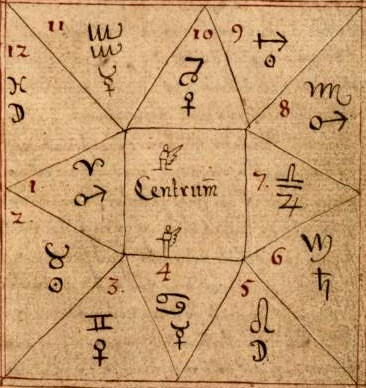 11 ♒ ☿
12 ♓ ☽
10 ♑ ♀
9 ♐ ☉
8 ♏ ♂
1 ♈ ♂
Centrum
7. ♎ ♃
2. ♉ ☉
3. ♊ ♀
4 ♋ ☿
5 ♌ ☽
6 ♍ ♄